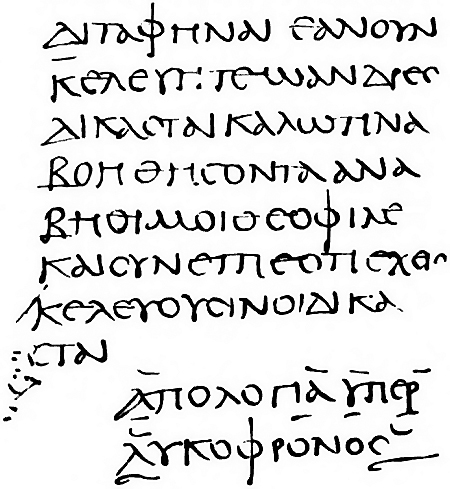 ΔΙΤΑΦΗΝΑΙ ΕΑΝΟΥΝ
ΚΕΛΕΥΗΤΕΩΑΝΔΡΕϹ
ΔΙΚΑϹΤΑΙΚΑΛΩΤΙΝΑ
ΒΟΗΘΗϹΟΝΤΑΑΝΑ
ΒΗΘΙΜΟΙΘΕΟΦΙΛΕ
ΚΑΙϹΥΝΕΙΠΕΟΤΙΕΧΕΙϹ
ΚΕΛΕΥΟΥϹΙΝΟΙΔΙΚΑ
ϹΤΑΙ
ΑΠΟΛΟΓΙΑ ΥΠΕΡ
ΛΥΚΟΦΡΟΝΟϹ